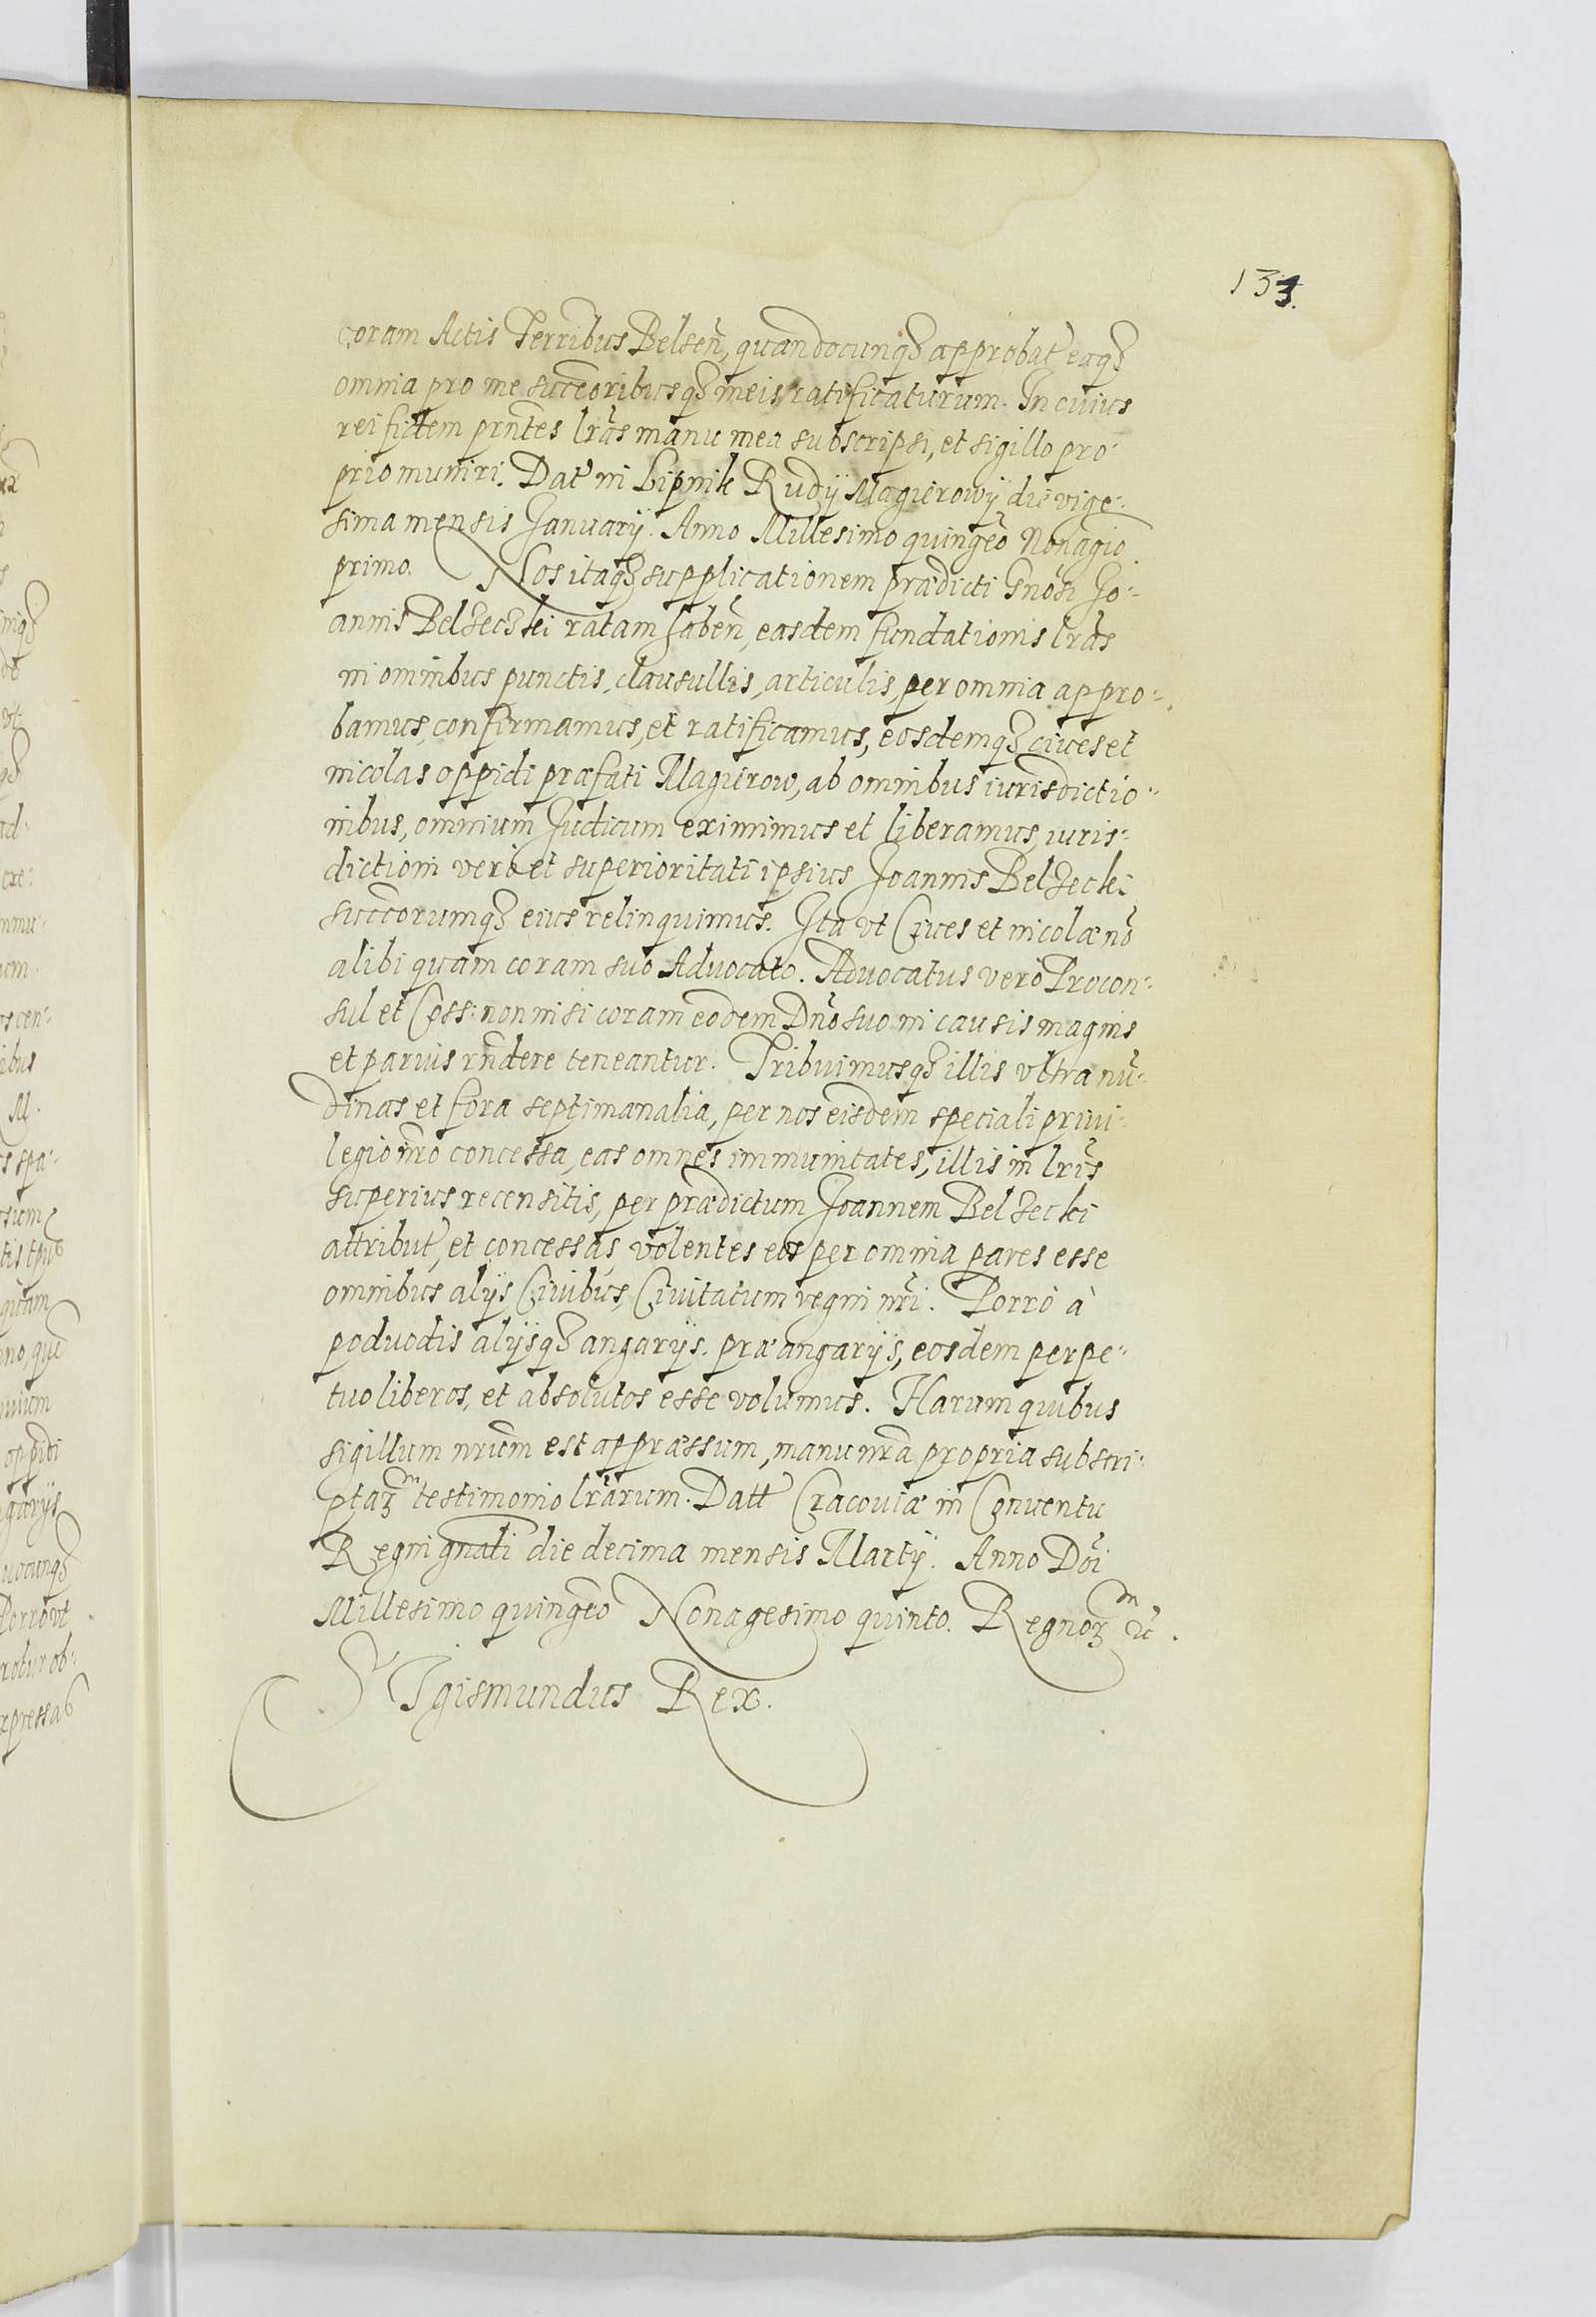 133.
coram Actis Terribus Belsen̄, quandocunqȝ approbat̃ eaqȝ
omnia pro me succeoribusqȝ meis ratificaturum. In cuius
rei fidem prñtes lrãs manu mea subscripsi, et sigillo pro-
prio muniri. Dat̃ in Lipnik Rudÿ Magierowÿ die vige-
sima mensis Januarÿ. Anno Millesimo quingeõ Nonagio
primo. Nos itaqȝ supplicationem prædicti Gnõsi Jo-
annis Belzeczki ratam haben̄, easdem fundationis lrãs
in omnibus punctis, clausullis, articulis, per omnia appro-
bamus, confirmamus, et ratificamus, eosdemqȝ ciues et
incolas oppidi præfati Magierow, ab omnibus iurisdictio-
nibus, omnium Judicum eximimus et liberamus, iuris-
dictioni verò et superioritati ipsius Joannis Belzecki
succeorumqȝ eius relinquimus. Ita vt Ciues et incolæ nõ
alibi quam coram suo Aduocato. Aduocatus verò Procon-
sul et Coss: non nisi coram eodem Dnõ suo in causis magnis
et paruis rñdere teneantur. Tribuimusqȝ illis vltra nũ-
dinas et fora septimanalia, per nos eisdem speciali priui-
legio nrõ concessa, eas omnes immunitates, illis in lrĩs
superius recensitis, per prædictum Joannem Belzecki
attribut̃, et concessas, volentes eos per omnia pares esse
omnibus alÿs Ciuibus, Ciuitatum regni nrĩ. Porrò à
poduodis alÿsqȝ angarÿs. præangarÿs, eosdem perpe-
tuo liberos, et absolutos esse volumus. Harum quibus
sigillum nrũm est appræssum, manu nrã propria subscri-
ptaȝ m testimonio lrãrum. Datt Cracouiæ in Conuentu
Regni gnãli die decima mensis Martÿ. Anno Dõi
Millesimo quingeõ Nonagesimo quinto. Regnoȝ m ũ.
Sigismundus Rex.